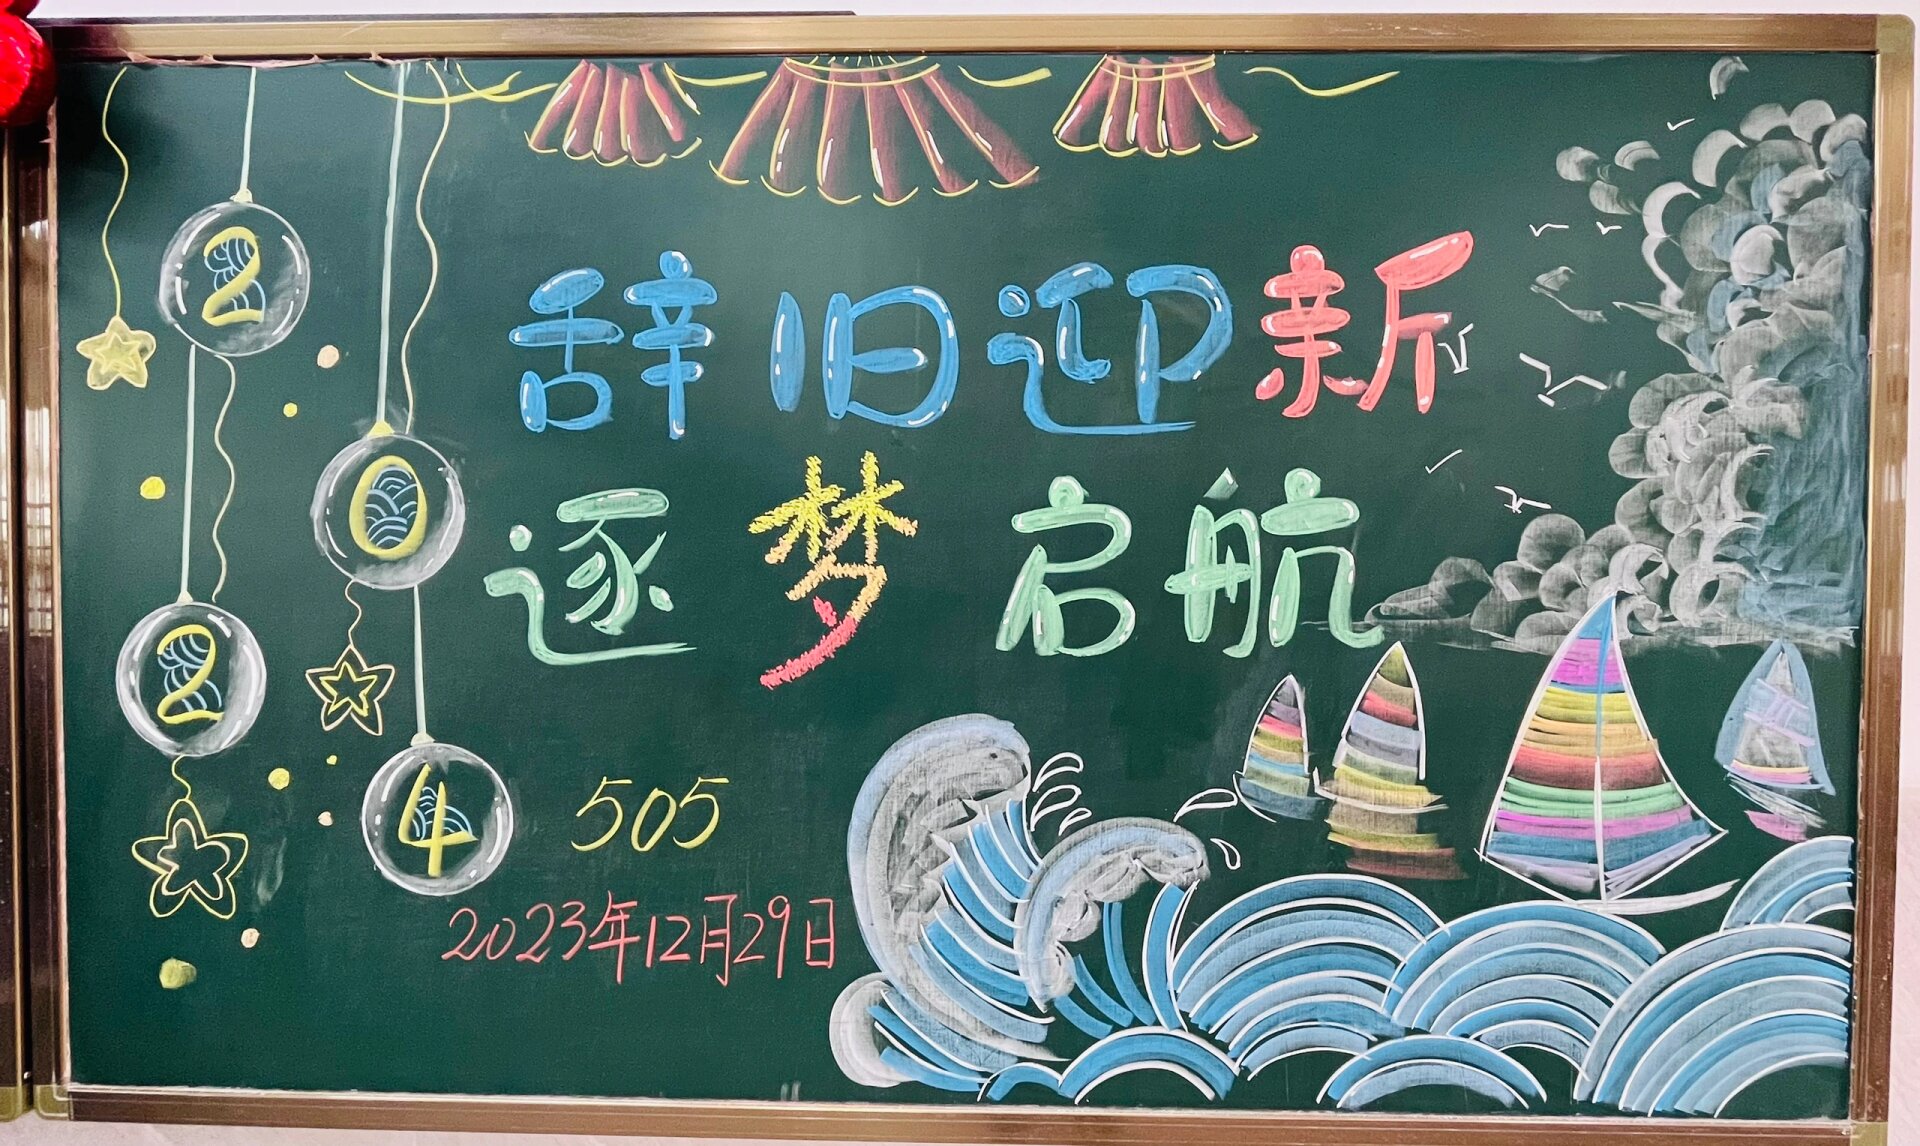 2024
辞旧迎新
逐梦启航
505
2023年12月29日